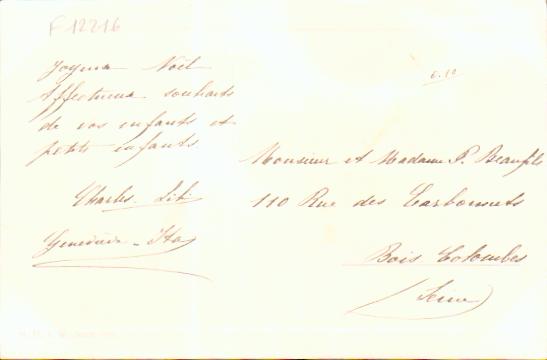 F 12216
Joyeux Noël
Affectueux souhaits
de vos enfants et
petits enfants.
Charles Lili
Geneviève Ita
6.10
Monsieur et Madame P. Beaufils
110 Rue des Carbonnets
Bois Colombes
Seine